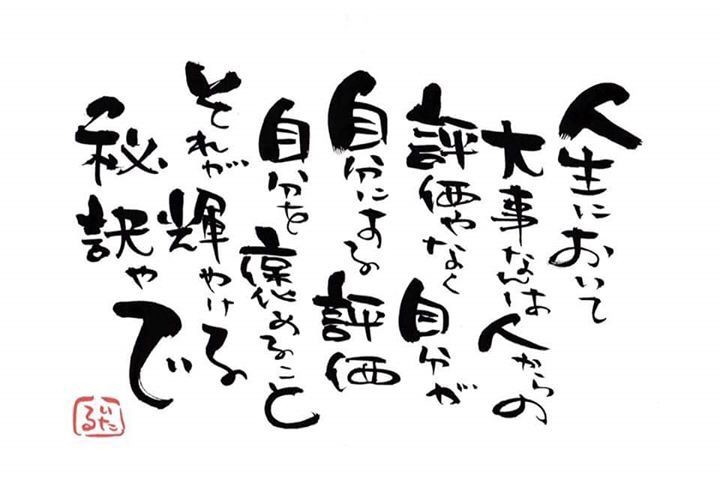 人生において
大事なんは人からの
評価やなく自分が
自分にする評価
自分を褒めること
それが輝やける
秘訣やで
いたる